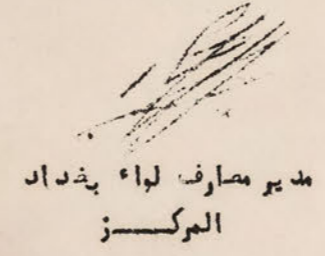 مدير معارف لواء بغداد
المركـــز